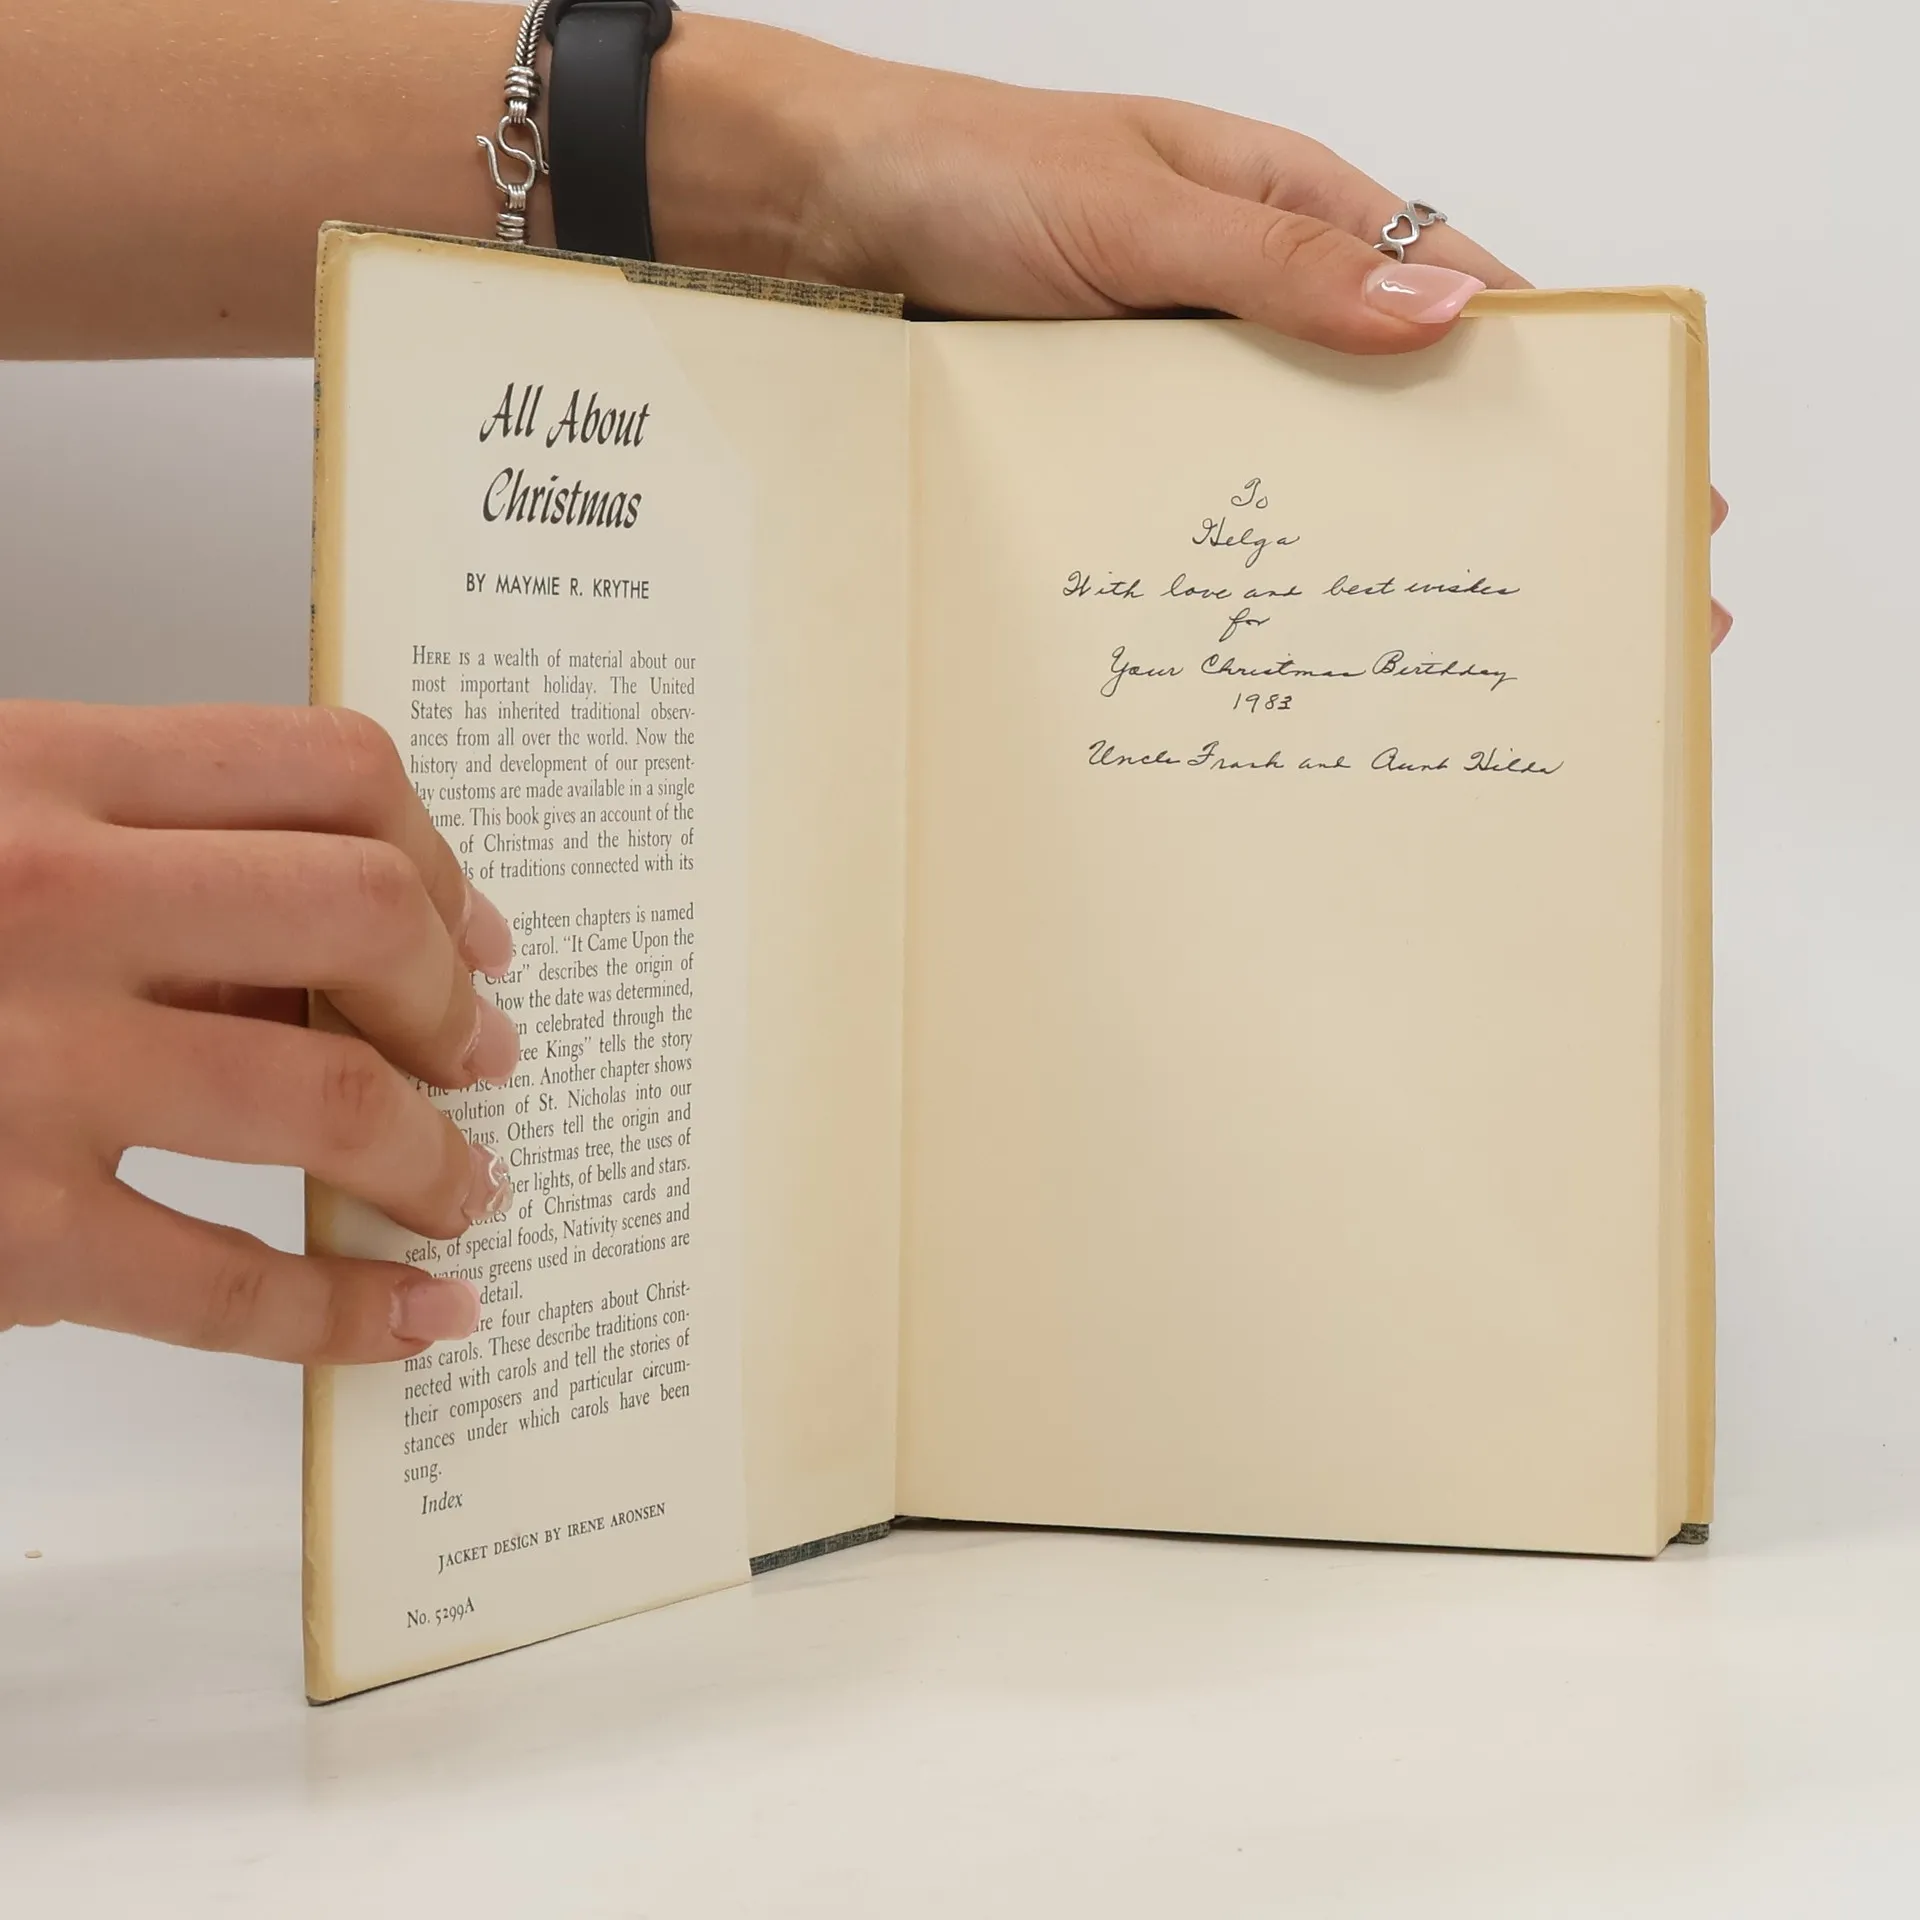 All About
Christmas
BY MAYMIE R. KRYTHE
HERE IS a wealth of material about our
most important holiday. The United
States has inherited traditional observ-
ances from all over the world. Now the
history and development of our present-
day customs are made available in a single
ume. This book gives an account of the
of Christmas and the history of
ds of traditions connected with its
eighteen chapters is named
s carol. “It Came Upon the
Clear” describes the origin of
how the date was determined,
n celebrated through the
ree Kings” tells the story
the Wise Men. Another chapter shows
evolution of St. Nicholas into our
Claus. Others tell the origin and
Christmas tree, the uses of
her lights, of bells and stars.
of Christmas cards and
seals, of special foods, Nativity scenes and
various greens used in decorations are
detail.
are four chapters about Christ-
mas carols. These describe traditions con-
nected with carols and tell the stories of
their composers and particular circum-
stances under which carols have been
sung.
Index
JACKET DESIGN BY IRENE ARONSEN
No. 5299A
To
Helga
With love and best wishes
for
Your Christmas Birthday
1983
Uncle Frank and Aunt Hilda